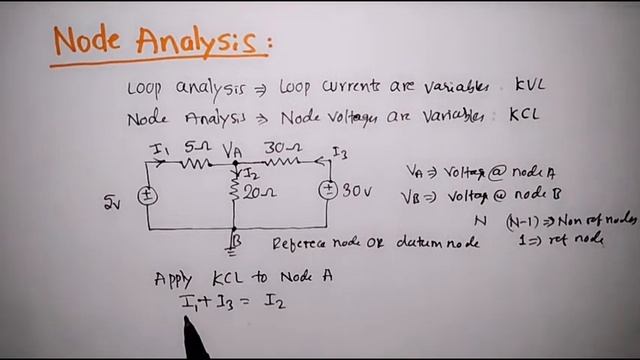 Node Analysis:
Loop analysis ⇒ Loop currents are variables. KVL
Node Analysis ⇒ Node voltages are variables: KCL
I₁ 5Ω VA 30Ω I₃
I₂
5v 20Ω 30v
VA ⇒ voltag @ node A
VB ⇒ voltag @ node B
N (N-1) ⇒ Non ref nodes
1 ⇒ ref node
B
Referece node OR datum node
Apply KCL to Node A
I₁ + I₃ = I₂